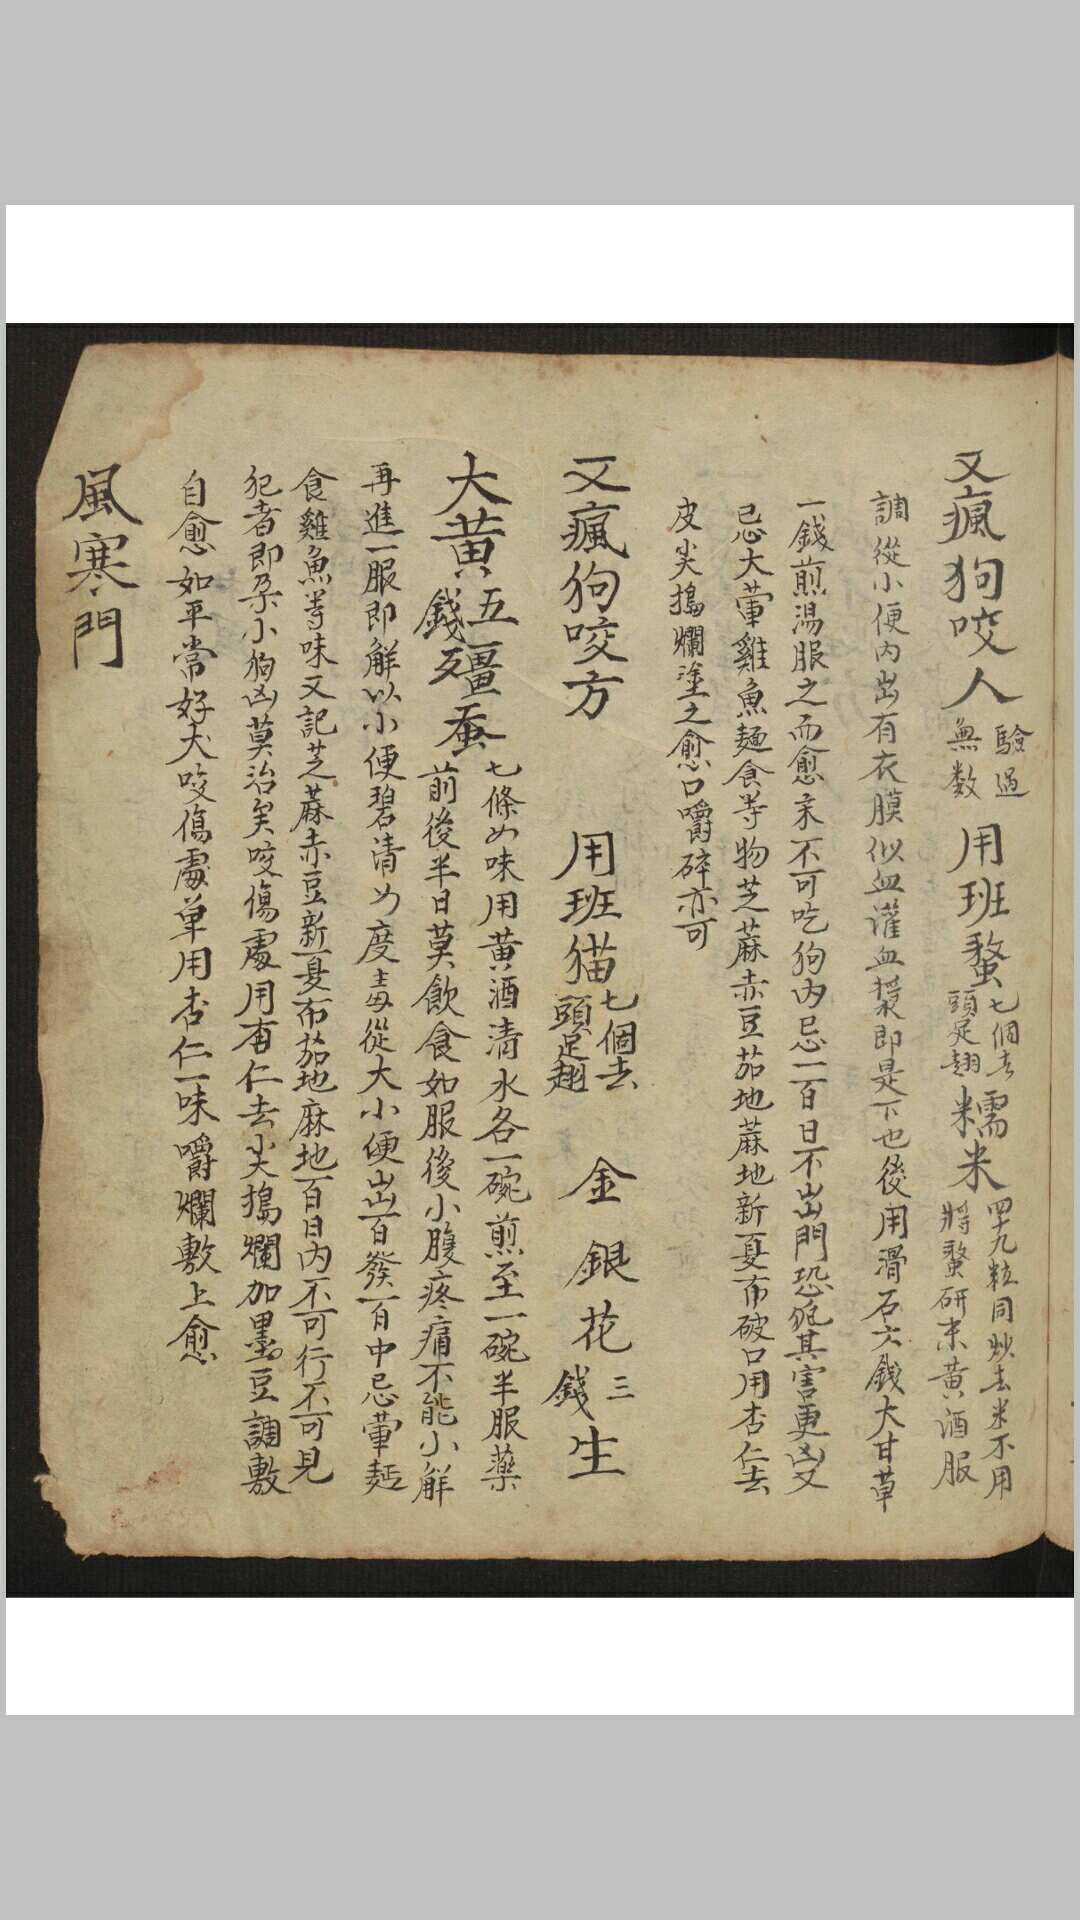 又瘋狗咬人 驗過無数 用班蝥 七個去頭足翅 糯米 四十九粒同炒去米不用將蝥研末黄酒服
調從小便內出有衣膜似血灌血漿即是下也後用滑石六錢大甘草
一錢煎湯服之而愈末不可吃狗內忌一百日不出門恐犯其害更凶又
忌大葷雞魚麵食等物芝蔴赤豆茄地蔴地新夏布破口用杏仁去
皮尖搗爛塗之愈口嚼碎亦可
又瘋狗咬方 用班猫 七個去頭足翅 金銀花 三錢 生
大黄 五錢 殭蚕 七條如味用黄酒清水各一碗煎至一碗半服藥前後半日莫飲食如服後小腹疼痛不能小解
再進一服即解以小便碧清如度毒從大小便出百發百中忌葷麺
食雞魚等味又記芝蔴赤豆新夏布茄地麻地百日內不可行不可見
犯者即朶小狗凶莫治矣咬傷處用杏仁去尖搗爛加墨豆調敷
自愈如平常好犬咬傷處单用杏仁一味嚼爛敷上愈
風寒門